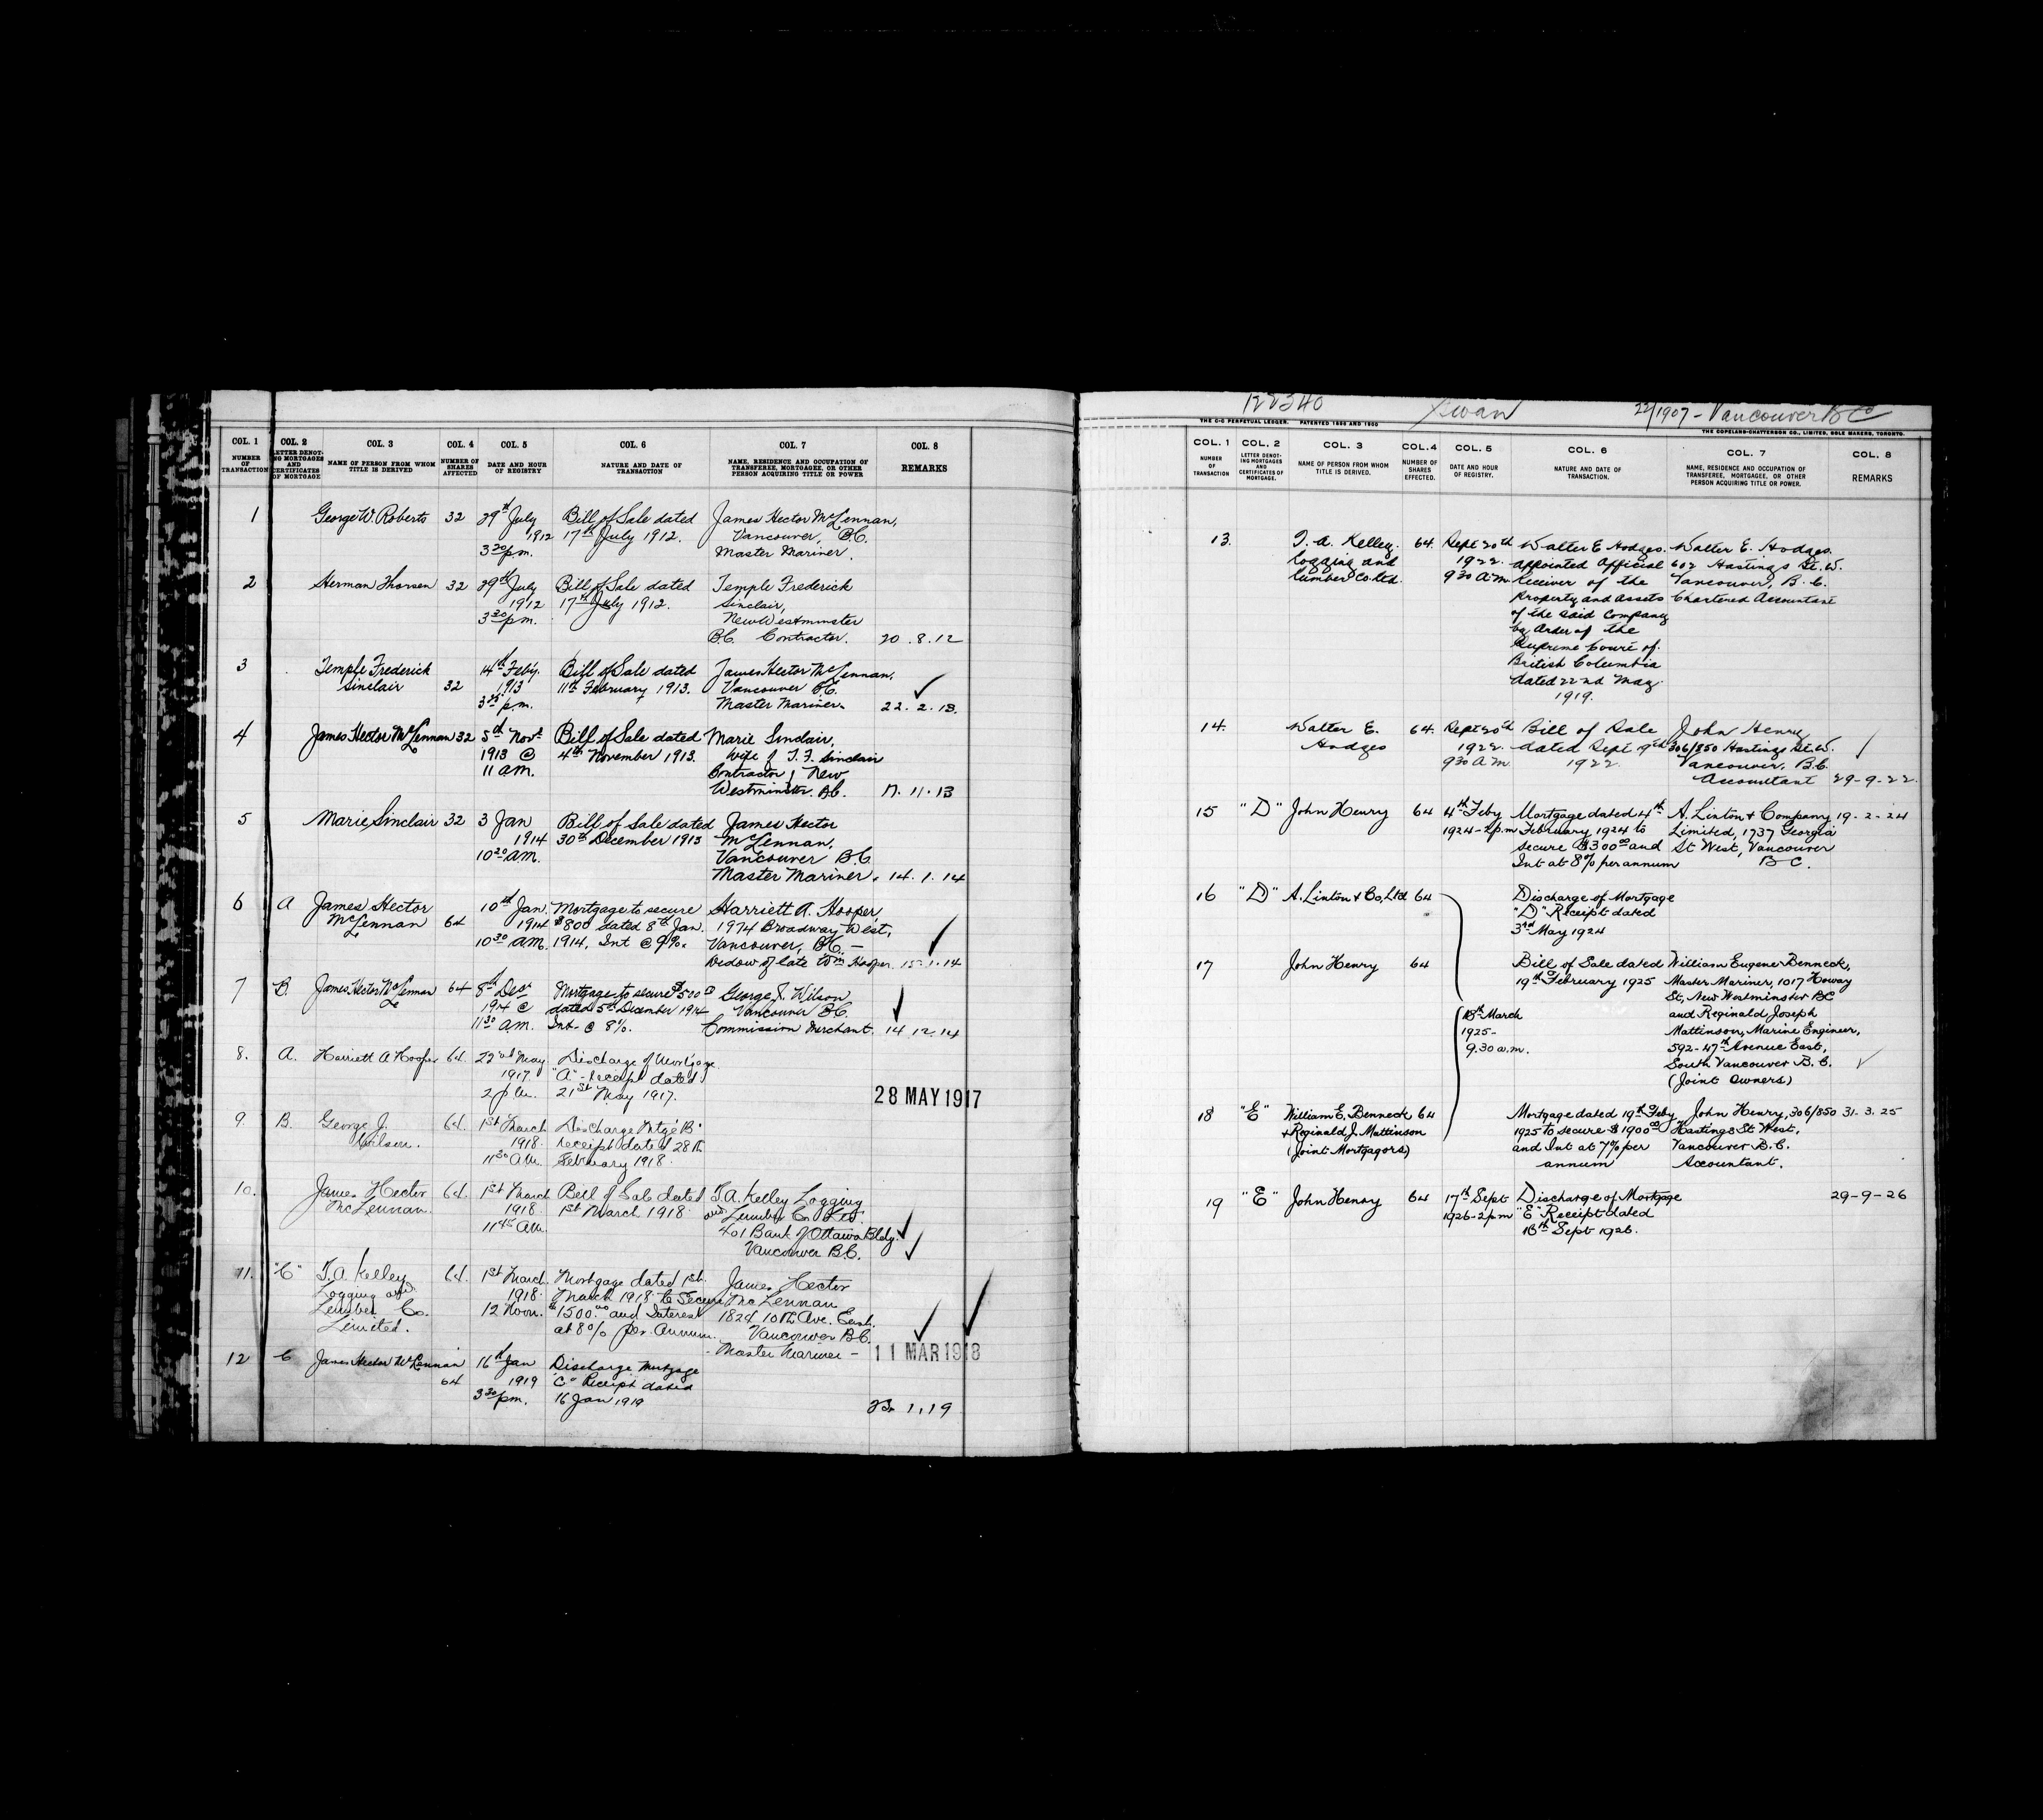 COL. 1 COL. 2 COL. 3 COL. 4 COL. 5 COL. 6 COL. 7 COL. 8
NUMBER OF TRANSACTION
LETTER DENOTING MORTGAGES AND CERTIFICATES OF MORTGAGE
NAME OF PERSON FROM WHOM TITLE IS DERIVED
NUMBER OF SHARES AFFECTED
DATE AND HOUR OF REGISTRY
NATURE AND DATE OF TRANSACTION
NAME, RESIDENCE AND OCCUPATION OF TRANSFEREE, MORTGAGEE, OR OTHER PERSON ACQUIRING TITLE OR POWER
REMARKS
1 George W. Roberts 32 29th July Bill of Sale dated James Hector McLennan,
1912 17th July 1912. Vancouver, B.C.
3 30 p.m. Master Mariner.
2 Herman Thorsen 32 29th July Bill of Sale dated Temple Frederick
1912 17th July 1912. Sinclair,
3 30 p.m. New Westminster
B.C. Contractor. 20.8.12
3 Temple Frederick 14th Feby. Bill of Sale dated James Hector McLennan,
Sinclair 32 1913 11th February 1913. Vancouver B.C.
p.m. Master Mariner. 22.2.13.
4 James Hector McLennan 32 5th Novr Bill of Sale dated Marie Sinclair,
1913 @ 4th November 1913. Wife of T. F. Sinclair
11 AM. Contractor, New
Westminster. B.C. 17.11.13
5 Marie Sinclair 32 3 Jan Bill of Sale dated James Hector
1914 30th December 1913 McLennan,
10 20 AM. Vancouver B.C.
Master Mariner. 14.1.14
6 A James Hector 10th Jan. Mortgage to secure Harriett A. Hooper,
McLennan 64 1914 $800 dated 8th Jan. 1974 Broadway West,
10 30 AM. 1914, Int @ 9%. Vancouver, B.C. —
Widow of late Wm Hooper. 15.1.14
7 B. James Hector McLennan 64 8th Decr Mortgage to secure $500 George J. Wilson
1914 @ dated 5th December 1914 Vancouver B.C.
11 30 am. Int @ 8%. Commission Merchant. 14.12.14
8. A. Harriett A Hooper 64. 22nd May Discharge of Mortgage
1917. "A" - receipt dated
2 p.m. 21st May 1917.
28 MAY 1917
9. B. George J. 64. 1st March Discharge Mtge "B"
Wilson. 1918. receipt dated 28th
11 30 AM. February 1918.
10. James Hector 64. 1st March Bill of Sale dated T.A. Kelley Logging
McLennan. 1918. 1st March 1918. and Lumber Co. Ltd.
11 45 AM. 401 Bank of Ottawa Bldg.
Vancouver B.C.
11. "C" T.A. Kelley 64. 1st March Mortgage dated 1st James Hector
Logging and 1918. March 1918 to Secure McLennan
Lumber Co. 12 Noon. $1500.00 and Interest 1824 10th Ave. East.
Limited. at 8% per Annum. Vancouver B.C.
- Master Mariner - 11 MAR 1918
12 C James Hector McLennan 16th Jan Discharge Mortgage
64 1919 "C" Receipt dated
3 30 pm. 16 Jan 1919
23.1.19
122340 Swan 22/1907 - Vancouver BC
THE C-C PERPETUAL LEDGER. THE COPELAND-CHATTERSON CO., LIMITED, SOLE MAKERS, TORONTO.
COL. 1 COL. 2 COL. 3 COL. 4 COL. 5 COL. 6 COL. 7 COL. 8
NUMBER OF TRANSACTION
LETTER DENOTING MORTGAGES AND CERTIFICATES OF MORTGAGE.
NAME OF PERSON FROM WHOM TITLE IS DERIVED.
NUMBER OF SHARES EFFECTED.
DATE AND HOUR OF REGISTRY.
NATURE AND DATE OF TRANSACTION.
NAME, RESIDENCE AND OCCUPATION OF TRANSFEREE, MORTGAGEE, OR OTHER PERSON ACQUIRING TITLE OR POWER.
REMARKS
13. T. A. Kelley. 64. Sept 20th Walter E Hodges. Walter E. Hodges.
Logging and 1922. appointed Official 602 Hastings St. W.
Lumber Co Ltd. 9 30 A.M. Receiver of the Vancouver, B.C.
Property and assets Chartered Accountant
of the said Company
by Order of the
Supreme Court of.
British Columbia
dated 22nd May.
1919.
14. Walter E. 64. Sept 20th Bill of Sale John Henry
Hodges 1922. dated Sept 9th 306/850 Hastings St. W.
9 30 A.M. 1922. Vancouver, B.C.
Accountant 29-9-22.
15 "D" John Henry 64 4th Feby Mortgage dated 4th A. Linton & Company 19-2-24
1924-2 p.m February 1924 to Limited, 1737 Georgia
secure $300.00 and St West, Vancouver
Int at 8% per annum B C.
16 "D" A. Linton & Co, Ltd 64 Discharge of Mortgage
"D" Receipt dated
3rd May 1924
17 John Henry 64 Bill of Sale dated William Eugene Benneck,
19th February 1925 Master Mariner, 1017 Howay
St, New Westminster BC
18th March and Reginald Joseph
1925- Mattinson, Marine Engineer,
9.30 a.m. 592-47th Avenue East,
South Vancouver B.C.
(Joint Owners)
18 "E" William E. Benneck 64 Mortgage dated 19th Feby John Henry, 306/850 31.3.25
& Reginald J. Mattinson 1925 to secure $1900.00 Hastings St. West,
(Joint Mortgagors) and Int at 7% per Vancouver B.C.
annum Accountant.
19 "E" John Henry 64 17th Sept Discharge of Mortgage 29-9-26
1926-2 pm "E" Receipt dated
16th Sept 1926.